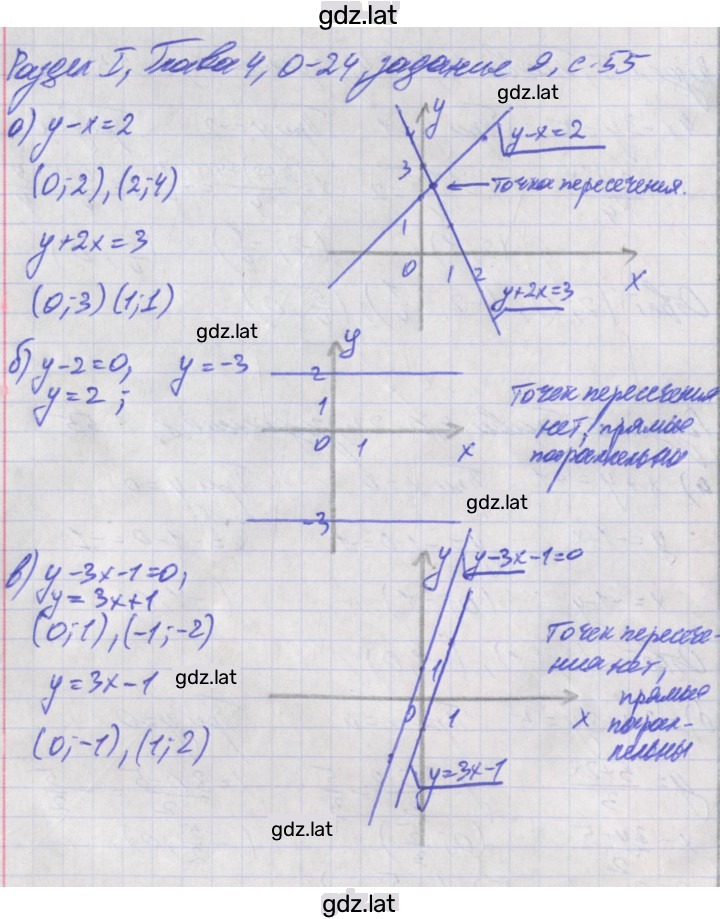 gdz.lat
Раздел I, Глава 4, О-24, задание 2, с. 55
gdz.lat
а) y-x=2
(0;-2), (2;4)
y+2x=3
(0;3) (1;1)
y
3
1
0
1
2
x
y-x=2
точка пересечения.
y+2x=3
gdz.lat
б) y-2=0, y=-3
y=2;
y
2
1
0
1
x
-3
Точек пересечения
нет, прямые
параллельны
gdz.lat
в) y-3x-1=0,
y=3x+1
(0;1), (-1;-2)
y=3x-1
gdz.lat
(0;-1), (1;2)
y
y-3x-1=0
1
0
1
x
y=3x-1
Точек пересече-
ния нет,
прямые
парал-
лельны
gdz.lat
gdz.lat